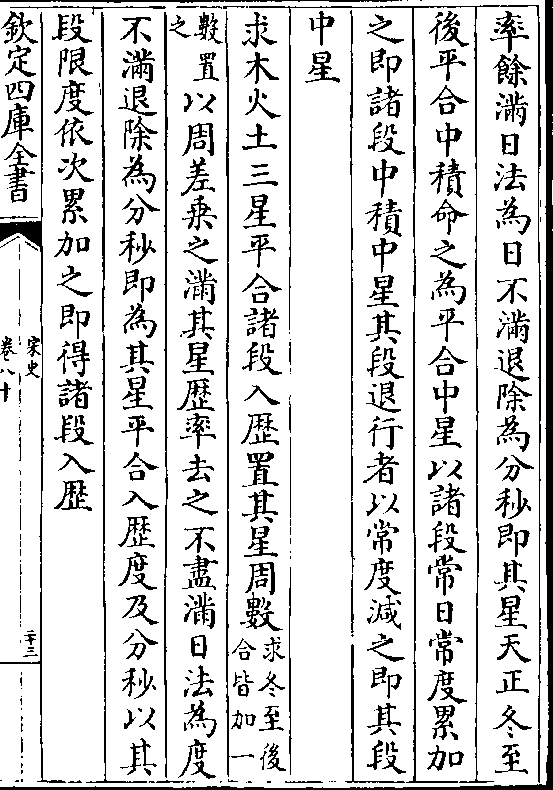 率餘滿日法為日不滿退除為分秒即其星天正冬至
後平合中積命之為平合中星以諸段常日常度累加
之即諸段中積中星其段退行者以常度減之即其段
中星
求木火土三星平合諸段入歴置其星周數求冬至後合皆加一
數置之以周差乘之滿其星歴率去之不盡滿日法為度
不滿退除為分秒即為其星平合入歴度及分秒以其
段限度依次累加之即得諸段入歴
欽定四庫全書
宋史
卷八十
二十三